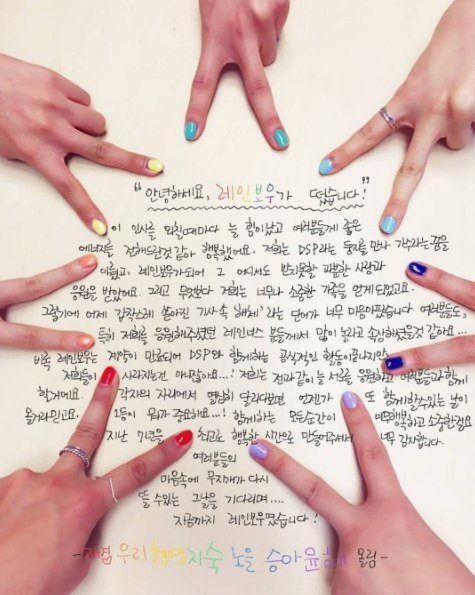 “안녕하세요, 레인보우가 떴습니다!”
이 인사를 외칠때마다 늘 힘이났고 여러분들께 좋은
에너지를 전해드린것 같아 행복했어요. 저희는 DSP라는 둥지를 만나 가수라는 꿈을
이뤘고, 레인보우가되어 그 어디서도 받지못할 과분한 사랑과
응원을 받았어요. 그리고 무엇보다 저희는 너무나 소중한 가족을 얻게되었고요.
그렇기에 어제 갑작스레 쏟아진 기사 속 '해체'라는 단어가 너무 마음아팠습니다 여러분들도,
특히 저희를 응원해주셨던 레인너스 분들께서 많이 놀라고 속상하셨을것 같아요...
비록 레인보우는 계약이 만료되어 DSP와 함께하는 공식적인 활동이 끝나지만
저희들이 사라지는건 아니잖아요...! 저희는 전과같이 늘 서로를 응원하고 여러분들과 함께
할거에요. 각자의 자리에서 열심히 달리다보면 언젠가 또 함께할수있는 날이
올거라믿고요. 1등이 뭐가 중요해요...! 함께하는 모든순간이 행복하고 소중한걸요
지난 7년을 최고로 행복한 시간으로 만들어주셔서 너무 감사합니다.
여러분들의
마음속에 무지개가 다시
뜰 수있는 그날을 기다리며....
지금까지 레인보우였습니다!
- 재경 우리 현영 지숙 노을 승아 윤혜 올림 -